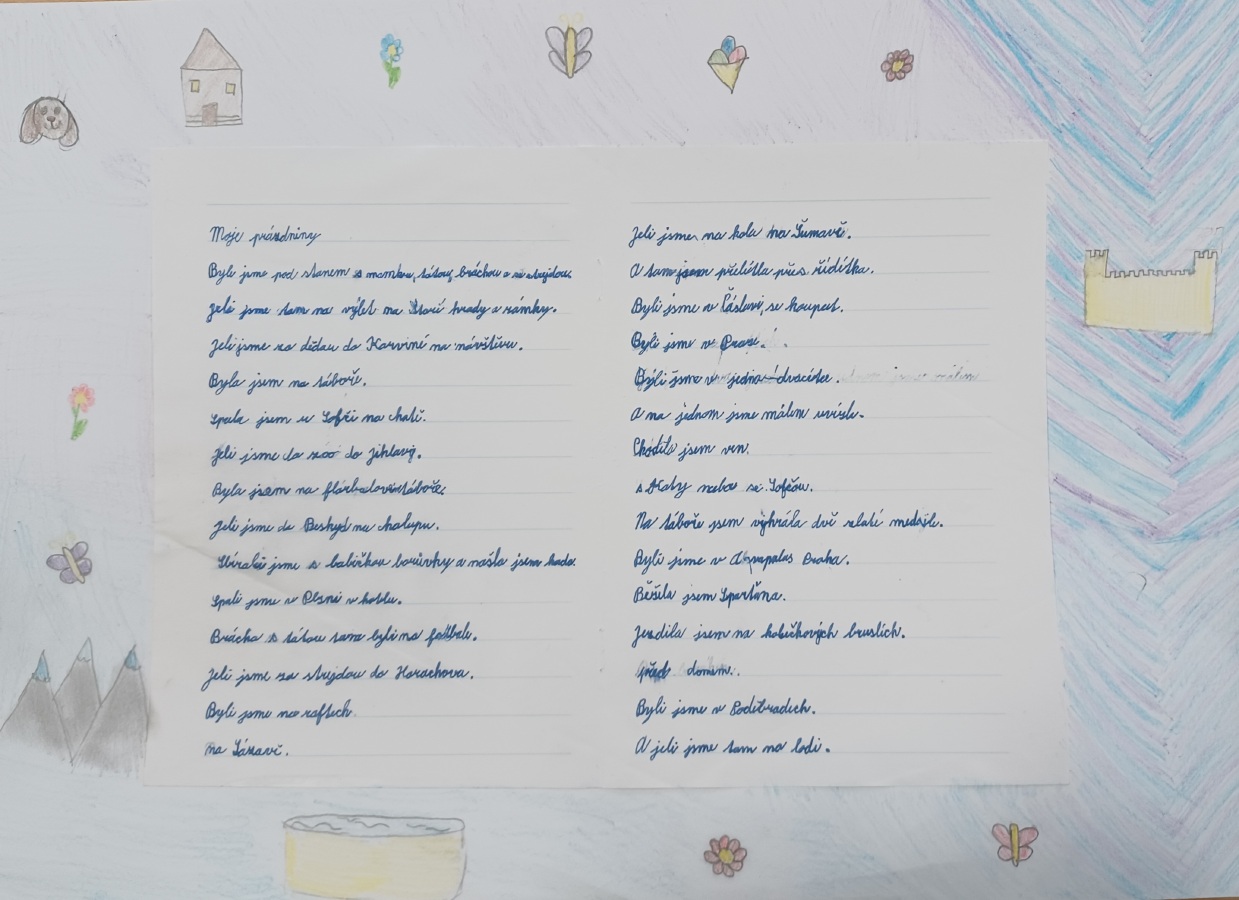 Moje prázdniny
Byli jsme pod stanem s mamkou, tátou, bráchou a se strejdou.
Jeli jsme tam na výlet na Staré hrady a zámky.
Jeli jsme za dědou do Karviné na návštěvu.
Byla jsem na táboře.
Spala jsem u Sofči na chatě.
Jeli jsme do zoo do Jihlavy.
Byla jsem na florbalovém táboře.
Jeli jsme do Beskyd na chalupu.
Sbírali jsme s babičkou borůvky a našla jsem hada.
Spali jsme v Plzni v hotelu.
Brácha s tátou tam byli na fotbale.
Jeli jsme za strejdou do Harachova.
Byli jsme na raftech
na Sázavě.
Jeli jsme na kola na Šumavě.
A tam jsem přelétla přes řídítka.
Byli jsme v Čáslavi, se koupat.
Byli jsme v Praze.
Byli jsme v jedna dvacítce.
A na jednom jsme málem uvízle.
Chodila jsem ven.
s Katy nebo se Sofčou.
Na táboře jsem vyhrála dvě zlaté medajle.
Byli jsme v Aquapalas Praha.
Běžela jsem Spartana.
Jezdila jsem na kolečkových bruslích.
před domem.
Byli jsme v Poděbradech.
A jeli jsme tam na lodi.